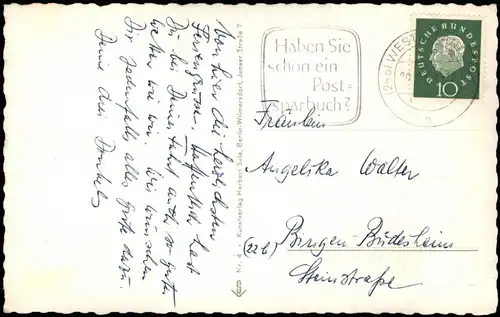 Von hier die herzlichsten
Feriengrüsse. Hoffentlich hast
Du bei Deiner Fahrt auch so gutes
Wetter wie wir. Wir wünschen
Dir jedenfalls alles Gute dazu.
Deine drei
Nr. 4 Kunstverlag Herbert Sala, Berlin-Wilmersdorf, Jenaer Straße 7
Haben Sie
schon ein
Post=
sparbuch?
(24b) WEST
DEUTSCHE BUNDESPOST
10
Fräulein
Angelika Walter
(22b) Bingen-Büdesheim
Steinstraße